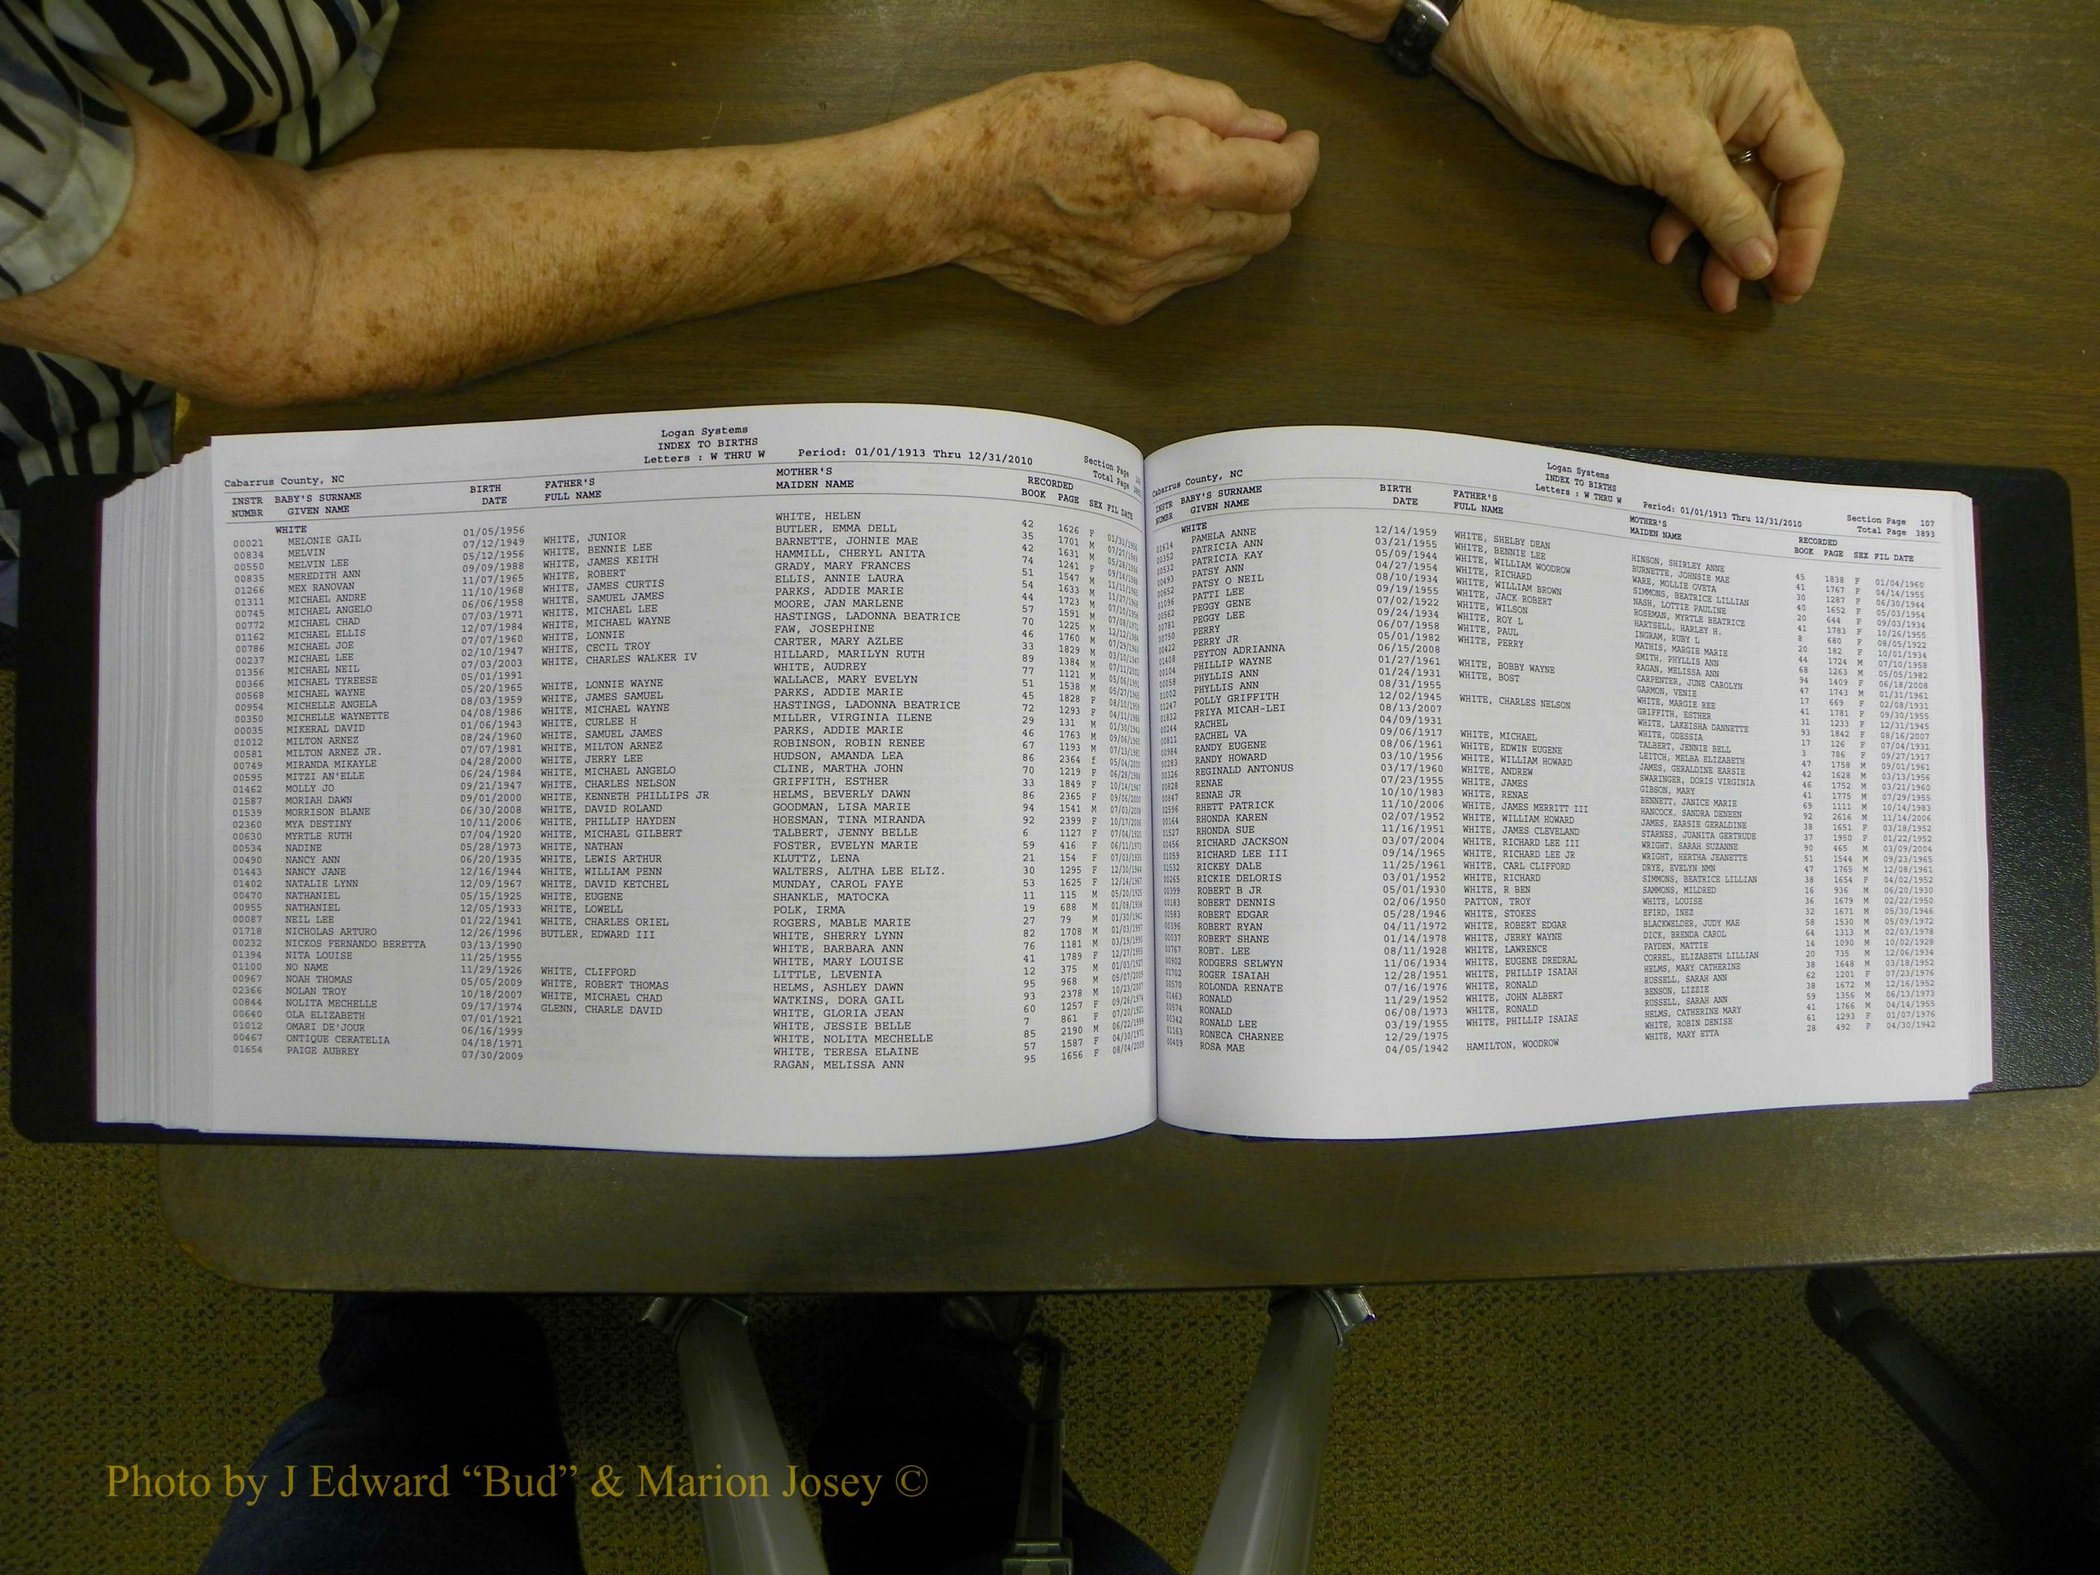 Logan Systems
INDEX TO BIRTHS
Letters : W THRU W Period: 01/01/1913 Thru 12/31/2010 Section Page
Cabarrus County, NC Total Page
INSTR BABY'S SURNAME BIRTH FATHER'S MOTHER'S RECORDED
NUMBR GIVEN NAME DATE FULL NAME MAIDEN NAME BOOK PAGE SEX FIL DATE
WHITE
00021 MELONIE GAIL 01/05/1956 WHITE, HELEN 42 1626 F 01/31/1956
00834 MELVIN 07/12/1949 WHITE, JUNIOR BUTLER, EMMA DELL 35 1701 M 07/27/1949
00550 MELVIN LEE 05/12/1956 WHITE, BENNIE LEE BARNETTE, JOHNIE MAE 42 1631 M 05/28/1956
00835 MEREDITH ANN 09/09/1988 WHITE, JAMES KEITH HAMMILL, CHERYL ANITA 74 1241 F 09/14/1988
01266 MEX RANOVAN 11/07/1965 WHITE, ROBERT GRADY, MARY FRANCES 51 1547 M 11/11/1965
01311 MICHAEL ANDRE 11/10/1968 WHITE, JAMES CURTIS ELLIS, ANNIE LAURA 54 1633 M 11/27/1968
00745 MICHAEL ANGELO 06/06/1958 WHITE, SAMUEL JAMES PARKS, ADDIE MARIE 44 1723 M 07/10/1958
00772 MICHAEL CHAD 07/03/1971 WHITE, MICHAEL LEE MOORE, JAN MARLENE 57 1591 M 07/09/1971
01162 MICHAEL ELLIS 12/07/1984 WHITE, MICHAEL WAYNE HASTINGS, LADONNA BEATRICE 70 1225 M 12/12/1984
00786 MICHAEL JOE 07/07/1960 WHITE, LONNIE FAW, JOSEPHINE 46 1760 M 07/29/1960
00237 MICHAEL LEE 02/10/1947 WHITE, CECIL TROY CARTER, MARY AZLEE 33 1829 M 03/10/1947
01356 MICHAEL NEIL 07/03/2003 WHITE, CHARLES WALKER IV HILLARD, MARILYN RUTH 89 1384 M 07/11/2003
00366 MICHAEL TYREESE 05/01/1991 WHITE, AUDREY 77 1121 M 05/06/1991
00568 MICHAEL WAYNE 05/20/1965 WHITE, LONNIE WAYNE WALLACE, MARY EVELYN 51 1538 M 05/27/1965
00954 MICHELLE ANGELA 08/03/1959 WHITE, JAMES SAMUEL PARKS, ADDIE MARIE 45 1828 F 08/10/1959
00350 MICHELLE WAYNETTE 04/08/1986 WHITE, MICHAEL WAYNE HASTINGS, LADONNA BEATRICE 72 1293 F 04/11/1986
00035 MIKERAL DAVID 01/06/1943 WHITE, CURLEE H MILLER, VIRGINIA ILENE 29 131 M 01/30/1943
01012 MILTON ARNEZ 08/24/1960 WHITE, SAMUEL JAMES PARKS, ADDIE MARIE 46 1763 M 09/06/1960
00581 MILTON ARNEZ JR. 07/07/1981 WHITE, MILTON ARNEZ ROBINSON, ROBIN RENEE 67 1193 M 07/13/1981
00749 MIRANDA MIKAYLE 04/28/2000 WHITE, JERRY LEE HUDSON, AMANDA LEA 86 2364 f 05/04/2000
00595 MITZI AN'ELLE 06/24/1984 WHITE, MICHAEL ANGELO CLINE, MARTHA JOHN 70 1219 F 06/28/1984
01462 MOLLY JO 09/21/1947 WHITE, CHARLES NELSON GRIFFITH, ESTHER 33 1849 F 10/14/1947
01587 MORIAH DAWN 09/01/2000 WHITE, KENNETH PHILLIPS JR HELMS, BEVERLY DAWN 86 2365 F 09/06/2000
01539 MORRISON BLANE 06/30/2008 WHITE, DAVID ROLAND GOODMAN, LISA MARIE 94 1541 M 07/03/2008
02360 MYA DESTINY 10/11/2006 WHITE, PHILLIP HAYDEN HOESMAN, TINA MIRANDA 92 2399 F 10/17/2006
00630 MYRTLE RUTH 07/04/1920 WHITE, MICHAEL GILBERT TALBERT, JENNY BELLE 6 1127 F 07/04/1920
00534 NADINE 05/28/1973 WHITE, NATHAN FOSTER, EVELYN MARIE 59 416 F 06/11/1973
00490 NANCY ANN 06/20/1935 WHITE, LEWIS ARTHUR KLUTTZ, LENA 21 154 F 07/03/1935
01443 NANCY JANE 12/16/1944 WHITE, WILLIAM PENN WALTERS, ALTHA LEE ELIZ. 30 1295 F 12/30/1944
01402 NATALIE LYNN 12/09/1967 WHITE, DAVID KETCHEL MUNDAY, CAROL FAYE 53 1625 F 12/14/1967
00470 NATHANIEL 05/15/1925 WHITE, EUGENE SHANKLE, MATOCKA 11 115 M 05/20/1925
00955 NATHANIEL 12/05/1933 WHITE, LOWELL POLK, IRMA 19 688 M 01/08/1934
00087 NEIL LEE 01/22/1941 WHITE, CHARLES ORIEL ROGERS, MABLE MARIE 27 79 M 01/30/1941
01718 NICHOLAS ARTURO 12/26/1996 BUTLER, EDWARD III WHITE, SHERRY LYNN 82 1708 M 01/03/1997
00232 NICKOS FERNANDO BERETTA 03/13/1990 WHITE, BARBARA ANN 76 1181 M 03/19/1990
01394 NITA LOUISE 11/25/1955 WHITE, MARY LOUISE 41 1789 F 12/27/1955
01100 NO NAME 11/29/1926 WHITE, CLIFFORD LITTLE, LEVENIA 12 375 M 01/03/1927
00967 NOAH THOMAS 05/05/2009 WHITE, ROBERT THOMAS HELMS, ASHLEY DAWN 95 968 M 05/07/2009
02366 NOLAN TROY 10/18/2007 WHITE, MICHAEL CHAD WATKINS, DORA GAIL 93 2378 M 10/23/2007
00844 NOLITA MECHELLE 09/17/1974 GLENN, CHARLE DAVID WHITE, GLORIA JEAN 60 1257 F 09/26/1974
00640 OLA ELIZABETH 07/01/1921 WHITE, JESSIE BELLE 7 861 F 07/20/1921
01012 OMARI DE'JOUR 06/16/1999 WHITE, NOLITA MECHELLE 85 2190 M 06/22/1999
00467 ONTIQUE CERATELIA 04/18/1971 WHITE, TERESA ELAINE 57 1587 F 04/30/1971
01654 PAIGE AUBREY 07/30/2009 RAGAN, MELISSA ANN 95 1656 F 08/04/2009
Logan Systems
INDEX TO BIRTHS
Letters : W THRU W Period: 01/01/1913 Thru 12/31/2010 Section Page 107
Cabarrus County, NC Total Page 3893
INSTR BABY'S SURNAME BIRTH FATHER'S MOTHER'S RECORDED
NUMBR GIVEN NAME DATE FULL NAME MAIDEN NAME BOOK PAGE SEX FIL DATE
WHITE
01614 PAMELA ANNE 12/14/1959 WHITE, SHELBY DEAN HINSON, SHIRLEY ANNE 45 1838 F 01/04/1960
00352 PATRICIA ANN 03/21/1955 WHITE, BENNIE LEE BURNETTE, JOHNSIE MAE 41 1767 F 04/14/1955
00532 PATRICIA KAY 05/09/1944 WHITE, WILLIAM WOODROW WARE, MOLLIE OVETA 30 1287 F 06/30/1944
00493 PATSY ANN 04/27/1954 WHITE, RICHARD SIMMONS, BEATRICE LILLIAN 40 1652 F 05/03/1954
00652 PATSY O NEIL 08/10/1934 WHITE, WILLIAM BROWN NASH, LOTTIE PAULINE 20 644 F 09/03/1934
01096 PATTI LEE 09/19/1955 WHITE, JACK ROBERT ROSEMAN, MYRTLE BEATRICE 41 1783 F 10/26/1955
00562 PEGGY GENE 07/02/1922 WHITE, WILSON HARTSELL, HARLEY H. 8 680 F 08/05/1922
00781 PEGGY LEE 09/24/1934 WHITE, ROY L INGRAM, RUBY L 20 182 F 10/01/1934
00750 PERRY 06/07/1958 WHITE, PAUL MATHIS, MARGIE MARIE 44 1724 M 07/10/1958
00422 PERRY JR 05/01/1982 WHITE, PERRY SMITH, PHYLLIS ANN 68 1263 M 05/05/1982
01408 PEYTON ADRIANNA 06/15/2008 RAGAN, MELISSA ANN 94 1409 F 06/18/2008
00104 PHILLIP WAYNE 01/27/1961 WHITE, BOBBY WAYNE CARPENTER, JUNE CAROLYN 47 1743 M 01/31/1961
00058 PHYLLIS ANN 01/24/1931 WHITE, BOST GARMON, VENIE 17 669 F 02/08/1931
01002 PHYLLIS ANN 08/31/1955 WHITE, MARGIE REE 41 1781 F 09/30/1955
01247 POLLY GRIFFITH 12/02/1945 WHITE, CHARLES NELSON GRIFFITH, ESTHER 31 1233 F 12/31/1945
01832 PRIYA MICAH-LEI 08/13/2007 WHITE, LAKEISHA DANNETTE 93 1842 F 08/16/2007
00244 RACHEL 04/09/1931 WHITE, ODESSIA 17 126 F 07/04/1931
00811 RACHEL VA 09/06/1917 WHITE, MICHAEL TALBERT, JENNIE BELL 3 786 F 09/27/1917
00984 RANDY EUGENE 08/06/1961 WHITE, EDWIN EUGENE LEITCH, MELBA ELIZABETH 47 1758 M 09/01/1961
00283 RANDY HOWARD 03/10/1956 WHITE, WILLIAM HOWARD JAMES, GERALDINE EARSIE 42 1628 M 03/13/1956
00326 REGINALD ANTONUS 03/17/1960 WHITE, ANDREW SWARINGER, DORIS VIRGINIA 46 1752 M 03/21/1960
00828 RENAE 07/23/1955 WHITE, JAMES GIBSON, MARY 41 1775 M 07/29/1955
00847 RENAE JR 10/10/1983 WHITE, RENAE BENNETT, JANICE MARIE 69 1111 M 10/14/1983
02596 RHETT PATRICK 11/10/2006 WHITE, JAMES MERRITT III HANCOCK, SANDRA DENEEN 92 2616 M 11/14/2006
00164 RHONDA KAREN 02/07/1952 WHITE, WILLIAM HOWARD JAMES, EARSIE GERALDINE 38 1651 F 03/18/1952
01527 RHONDA SUE 11/16/1951 WHITE, JAMES CLEVELAND STARNES, JUANITA GERTRUDE 37 1950 F 01/22/1952
00456 RICHARD JACKSON 03/07/2004 WHITE, RICHARD LEE III WRIGHT, SARAH SUZANNE 90 465 M 03/09/2004
01059 RICHARD LEE III 09/14/1965 WHITE, RICHARD LEE JR WRIGHT, HERTHA JEANETTE 51 1544 M 09/23/1965
01532 RICKEY DALE 11/25/1961 WHITE, CARL CLIFFORD DRYE, EVELYN NMN 47 1765 M 12/08/1961
00265 RICKIE DELORIS 03/01/1952 WHITE, RICHARD SIMMONS, BEATRICE LILLIAN 38 1654 F 04/02/1952
00399 ROBERT B JR 05/01/1930 WHITE, R BEN SAMMONS, MILDRED 16 936 M 06/20/1930
00183 ROBERT DENNIS 02/06/1950 PATTON, TROY WHITE, LOUISE 36 1679 M 02/22/1950
00583 ROBERT EDGAR 05/28/1946 WHITE, STOKES EFIRD, INEZ 32 1671 M 05/30/1946
00396 ROBERT RYAN 04/11/1972 WHITE, ROBERT EDGAR BLACKWELDER, JUDY MAE 58 1530 M 05/09/1972
00037 ROBERT SHANE 01/14/1978 WHITE, JERRY WAYNE DICK, BRENDA CAROL 64 1313 M 02/03/1978
00767 ROBT. LEE 08/11/1928 WHITE, LAWRENCE PAYDEN, MATTIE 14 1090 M 10/02/1928
00902 RODGERS SELWYN 11/06/1934 WHITE, EUGENE DREDRAL CORREL, ELIZABETH LILLIAN 20 735 M 12/06/1934
01702 ROGER ISAIAH 12/28/1951 WHITE, PHILLIP ISAIAH HELMS, MARY CATHERINE 38 1648 M 03/18/1952
00570 ROLONDA RENATE 07/16/1976 WHITE, RONALD RUSSELL, SARAH ANN 62 1201 F 07/23/1976
01463 RONALD 11/29/1952 WHITE, JOHN ALBERT BENSON, LIZZIE 38 1672 M 12/16/1952
00574 RONALD 06/08/1973 WHITE, RONALD RUSSELL, SARAH ANN 59 1356 M 06/13/1973
00342 RONALD LEE 03/19/1955 WHITE, PHILLIP ISAIAE HELMS, CATHERINE MARY 41 1766 M 04/14/1955
01163 RONECA CHARNEE 12/29/1975 WHITE, ROBIN DENISE 61 1293 F 01/07/1976
00409 ROSA MAE 04/05/1942 HAMILTON, WOODROW WHITE, MARY ETTA 28 492 F 04/30/1942
Photo by J Edward “Bud” & Marion Josey ©